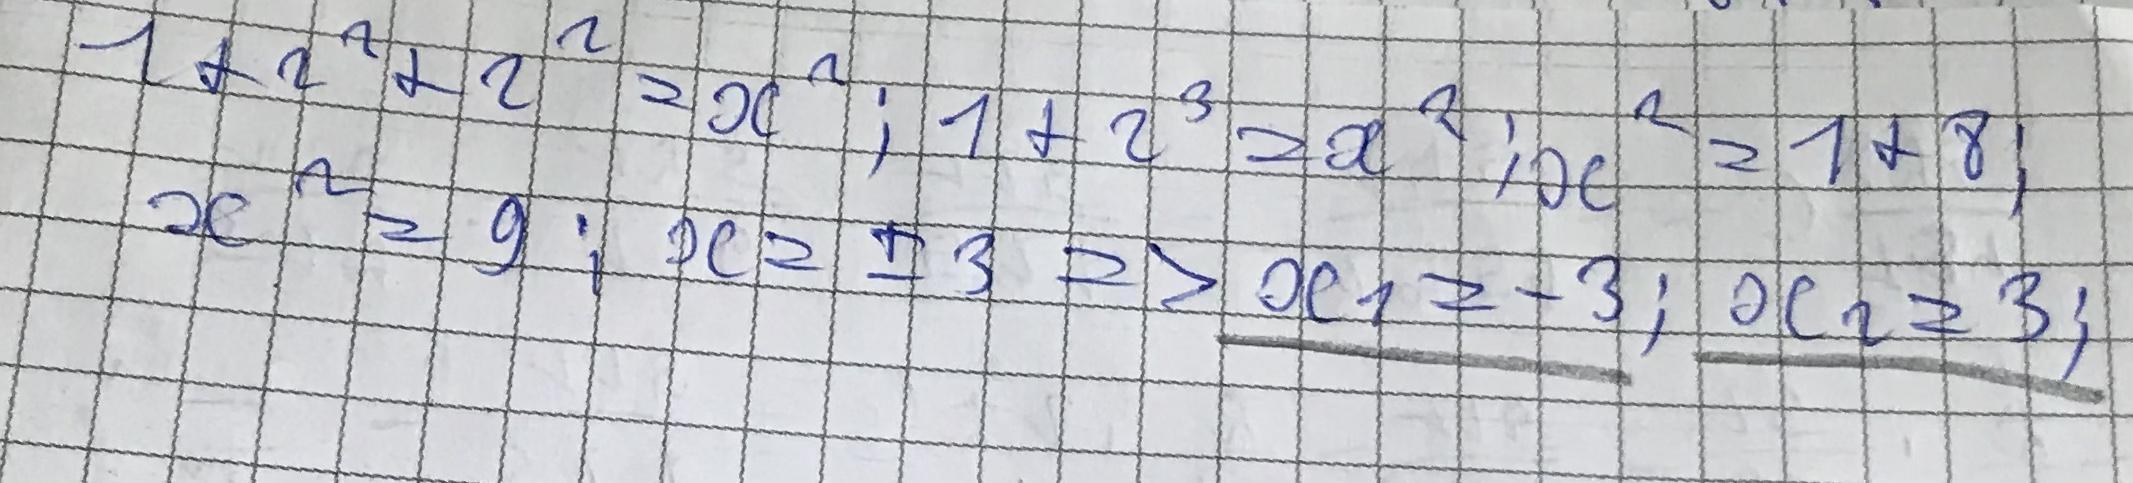 1+2²+2²=x²; 1+2³=x²; x²=1+8;
x²=9; x=±3 => x₁=-3; x₂=3;